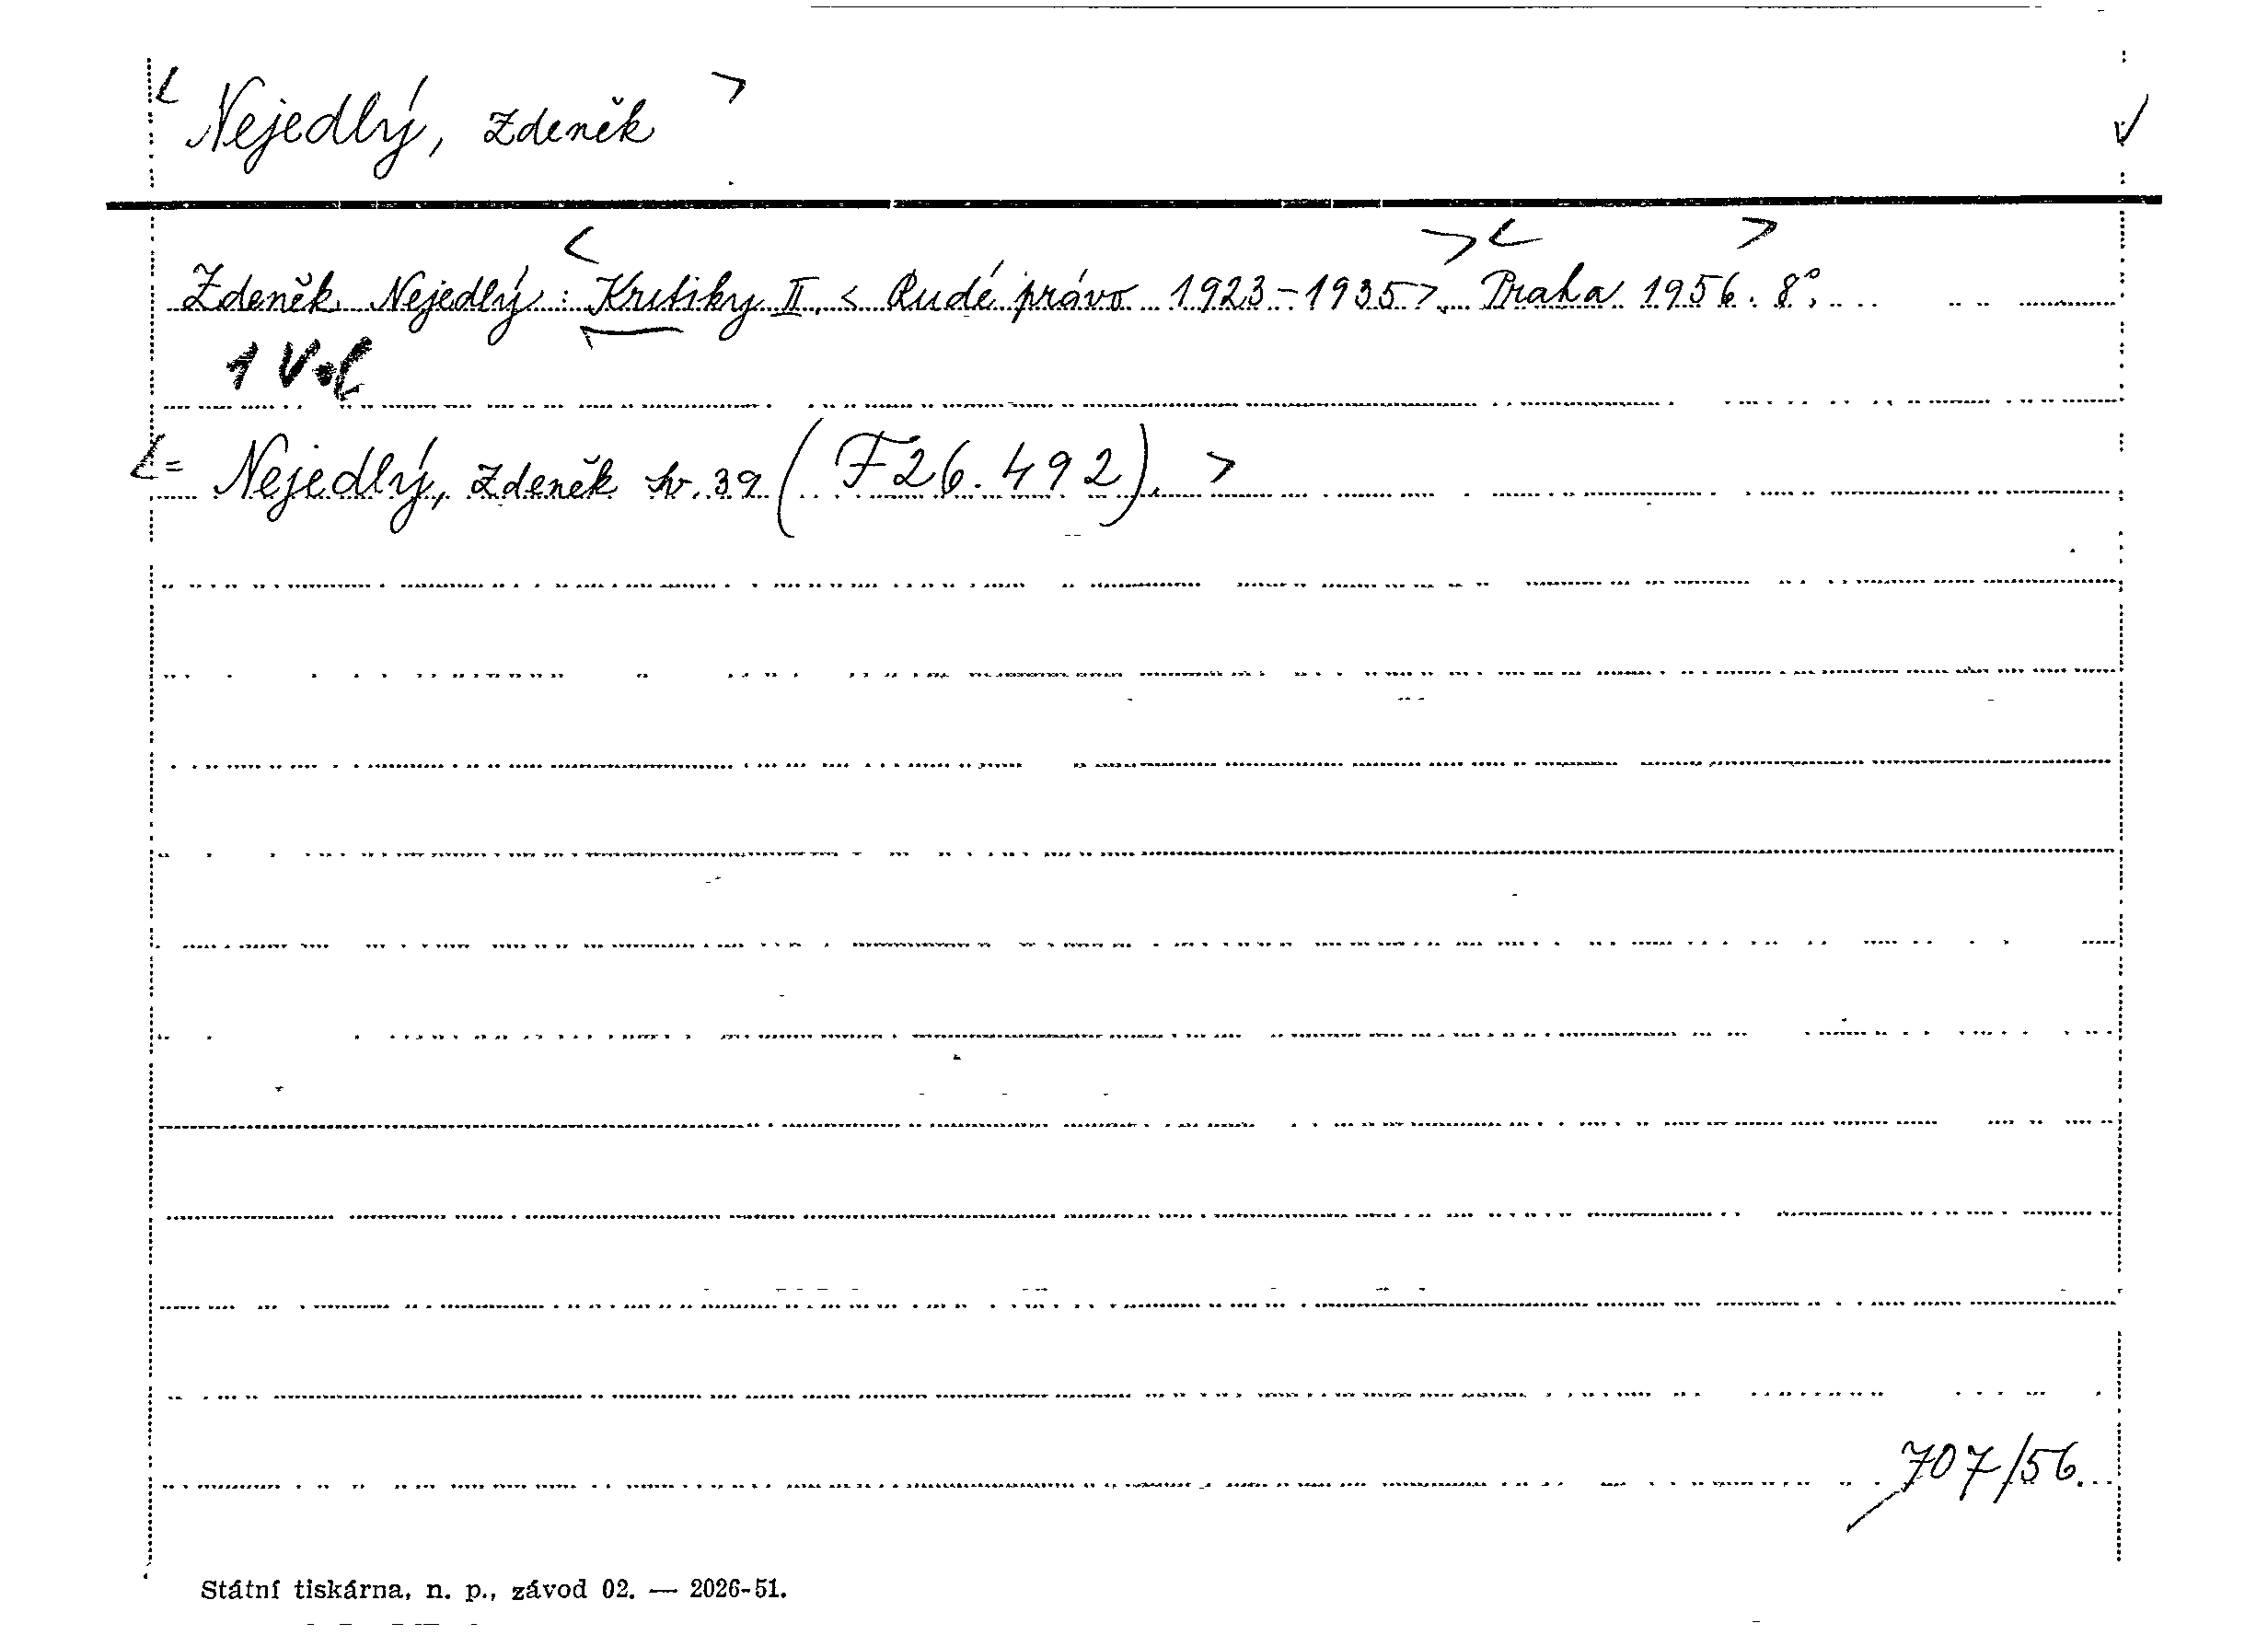 < Nejedlý, Zdeněk > √
Zdeněk Nejedlý: < Kritiky II. < Rudé právo 1923-1935>. > < Praha 1956. > 8°.
1 Vol
< = Nejedlý, Zdeněk sv. 39 (F 26.492). >
707/56.
Státní tiskárna, n. p., závod 02. — 2026-51.